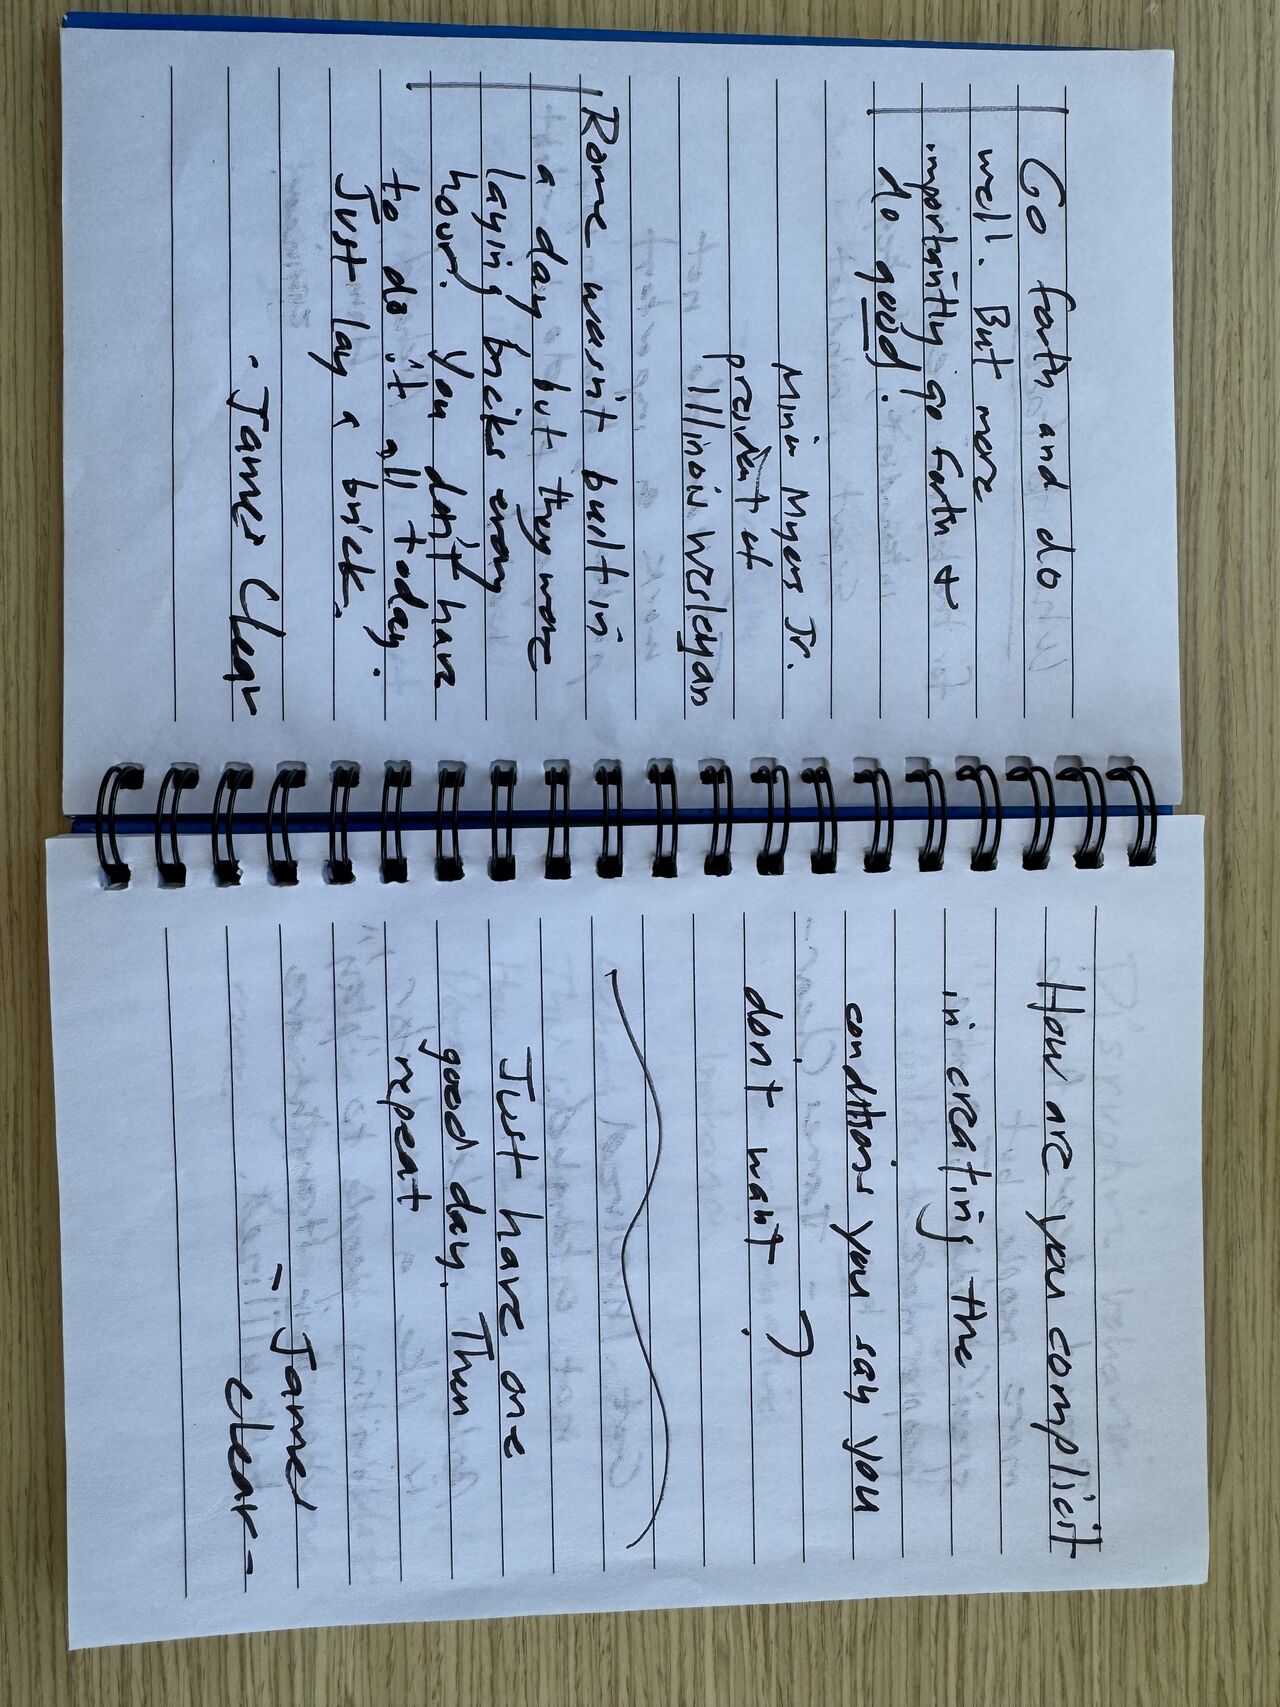 Go forth and do
well. But more
importantly go forth +
do good!
Minor Myers Jr.
president of
Illinois Wesleyan
Rome wasn't built in
a day but they were
laying bricks every
hour. You don't have
to do it all today.
Just lay a brick.
· James Clear
How are you complicit
in creating the
conditions you say you
don't want?
Just have one
good day. Then
repeat
- James
Clear -